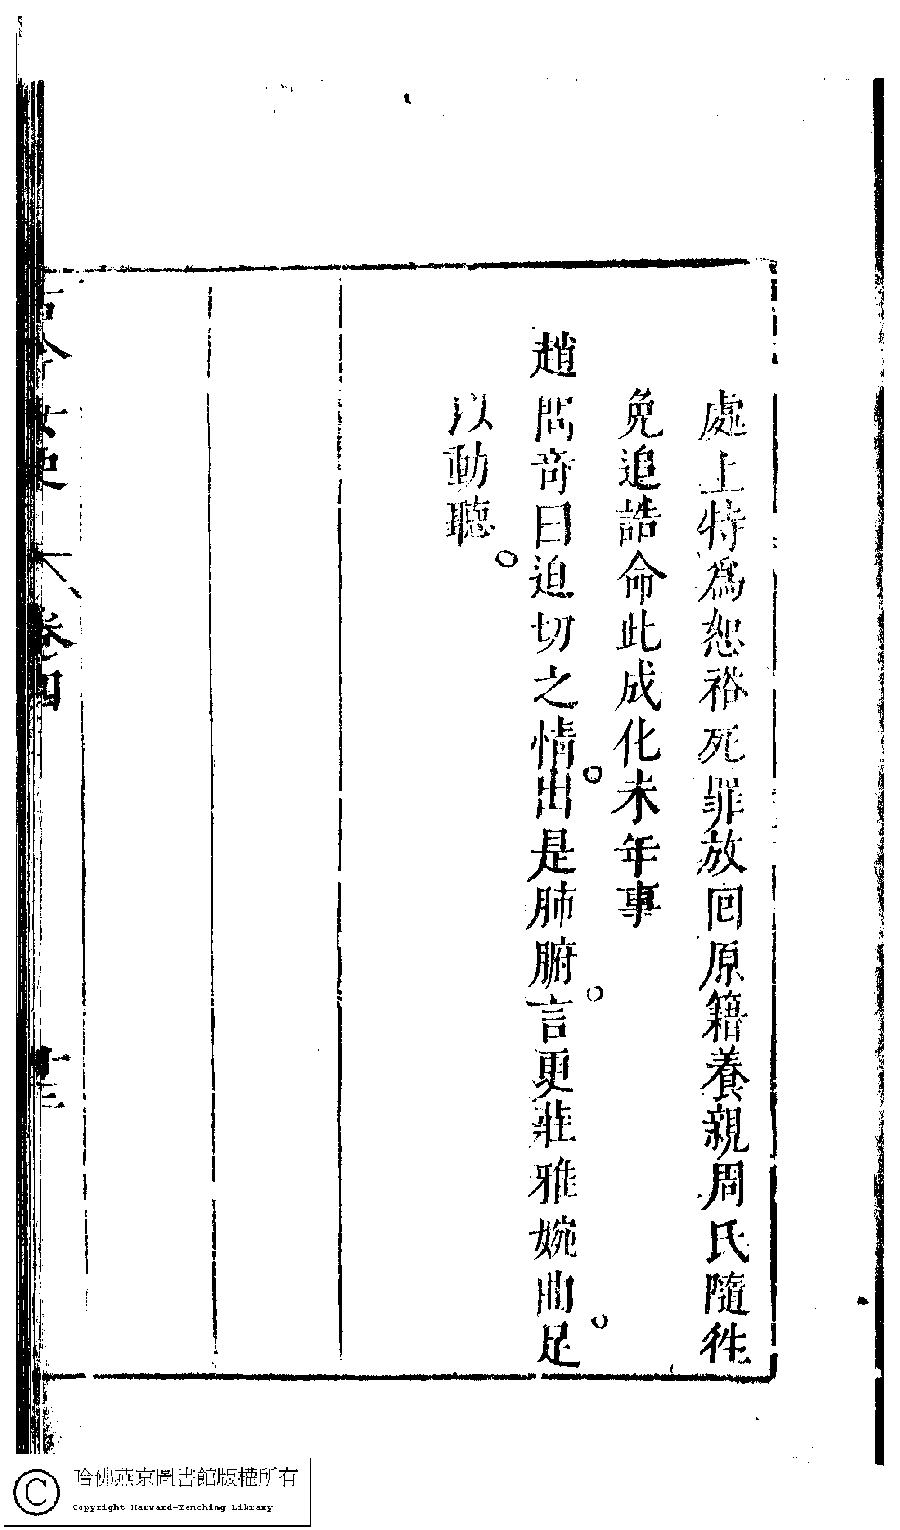 處上特爲恕裕死罪放囘原籍養親周氏隨徃
免追誥命此成化未年事
趙問奇曰迫切之情。出是肺腑。言更莊雅婉曲。足
以動聽。
古今女史 卷四 十三
哈佛燕京圖書館版權所有
Copyright Harvard-Yenching Library